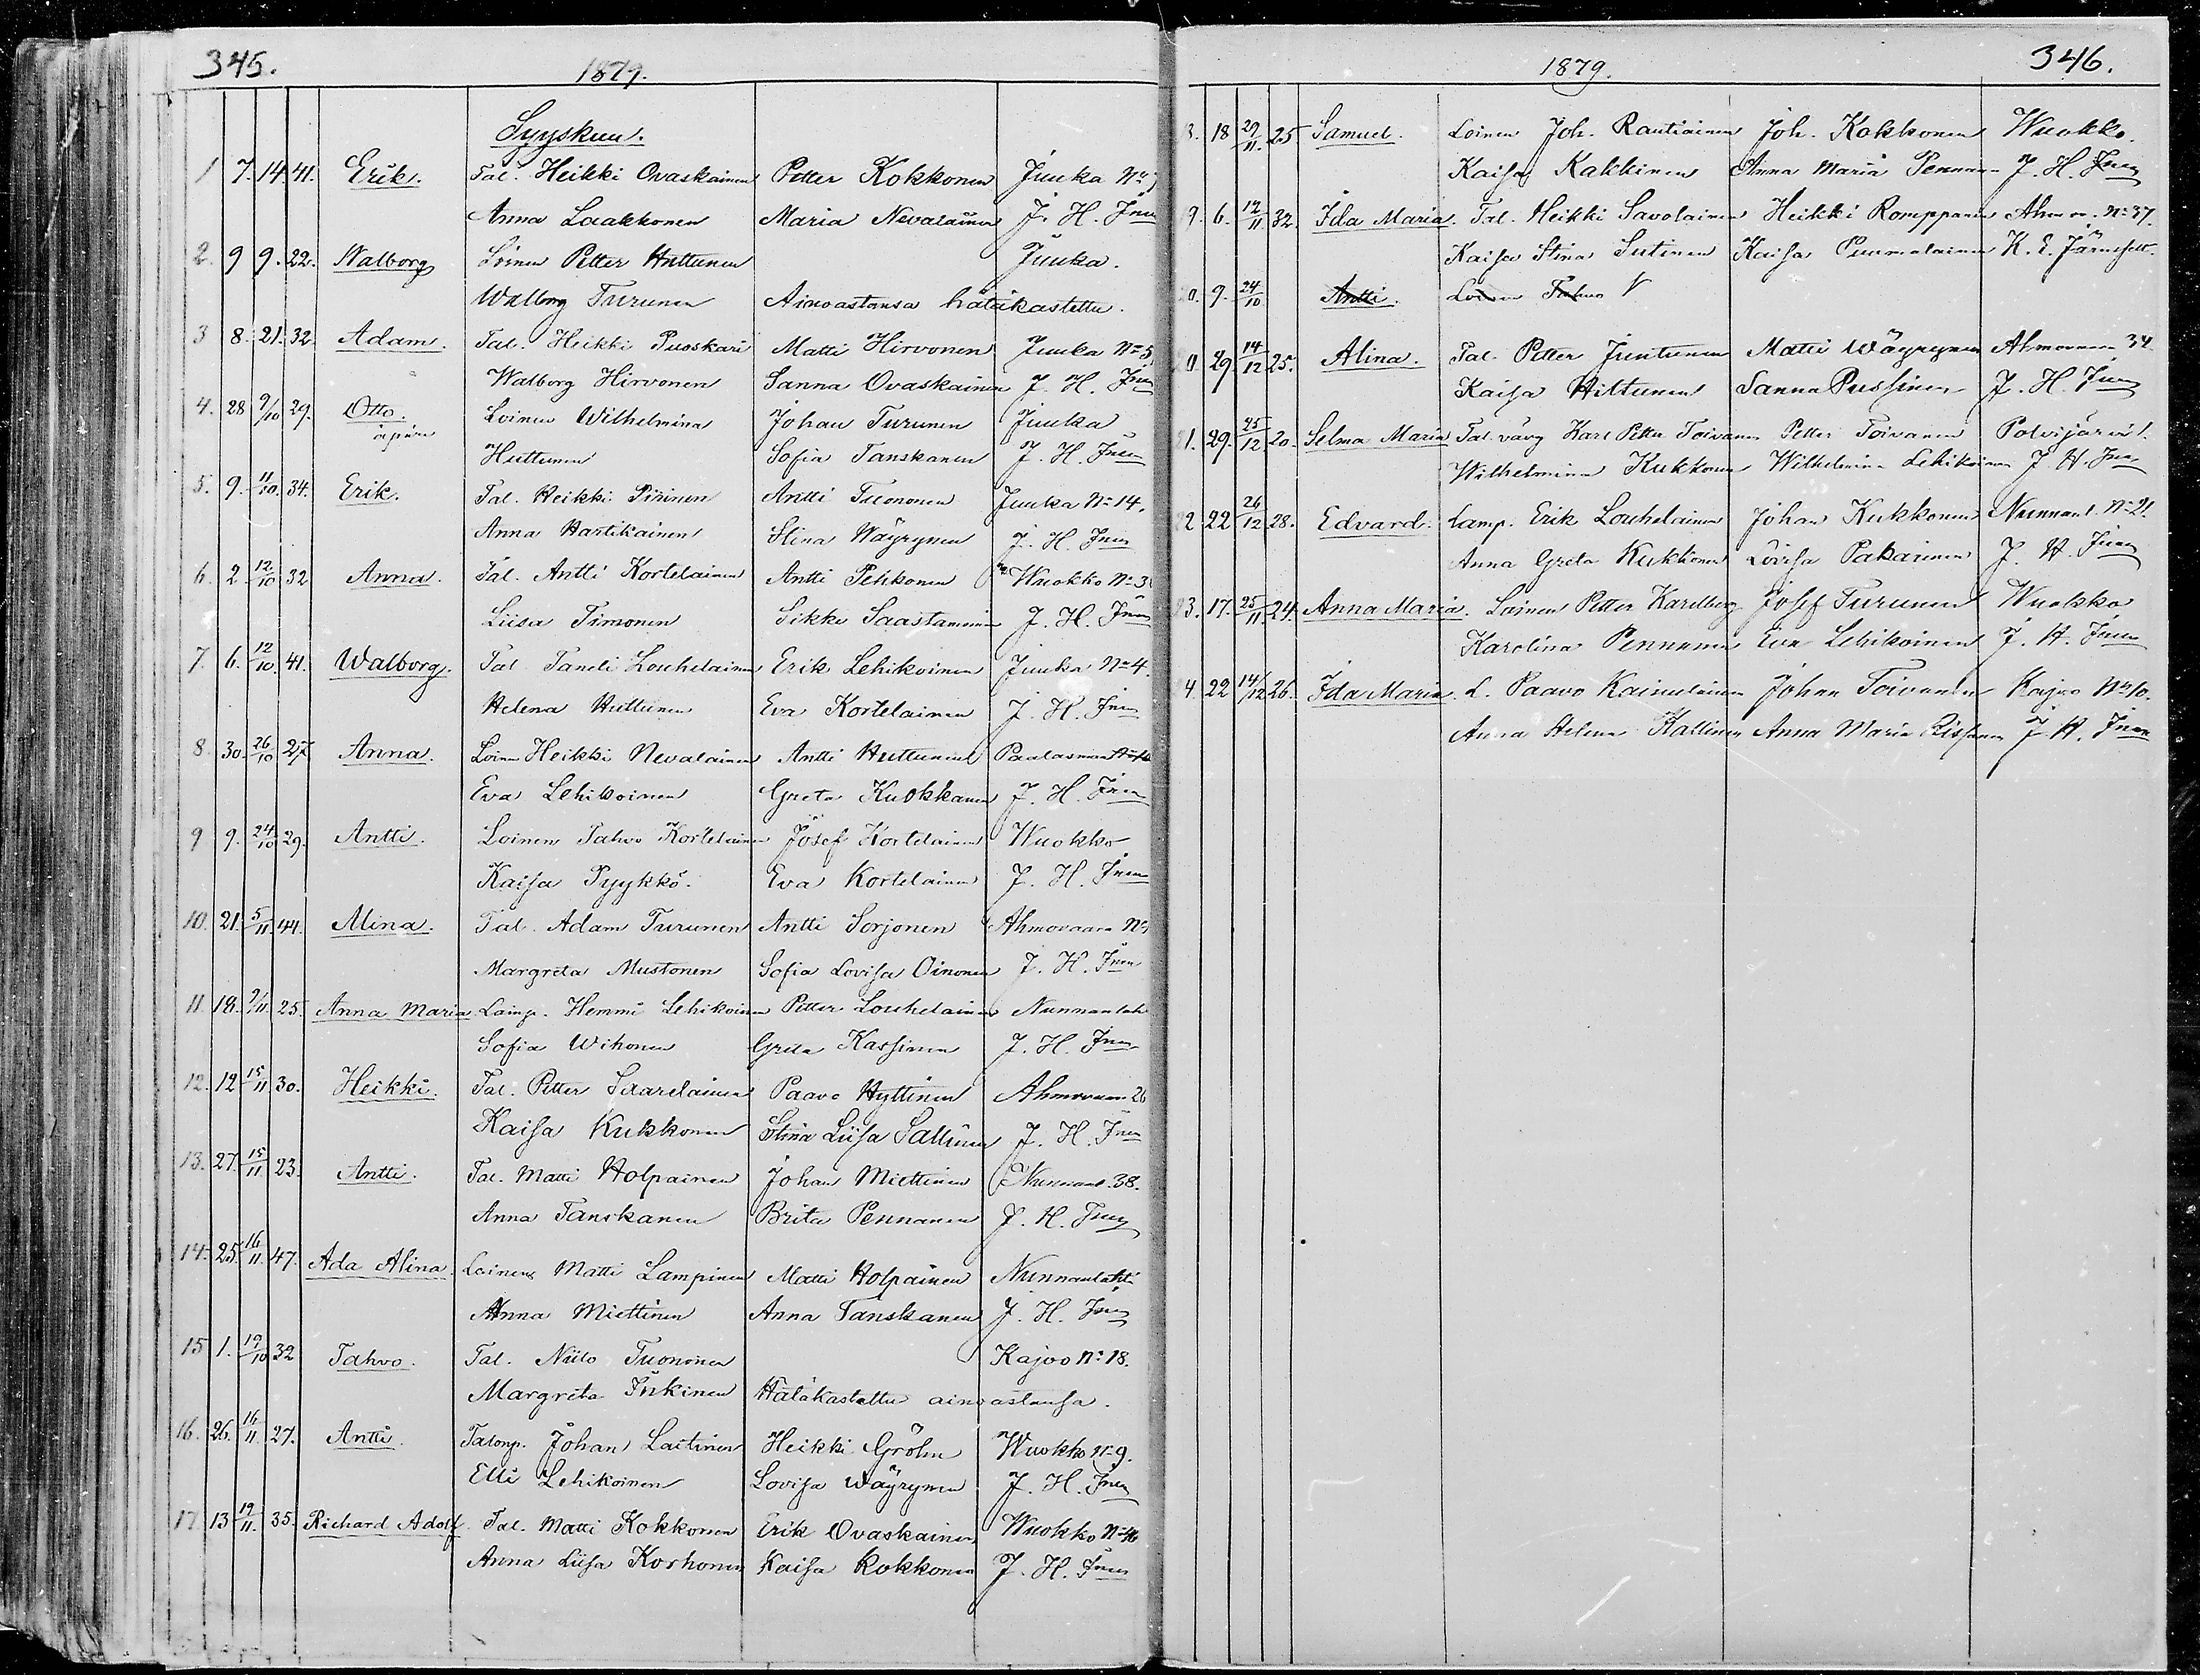 345.
1879.
Syyskuu.
1 7. 14. 41. Erik. Tal. Heikki Ovaskainen Petter Kokkonen Juuka No
Anna Laakkonen Maria Nevalainen J. H. Inen
2. 9 9. 22. Walborg Loinen Petter Huttunen Juuka.
Walborg Turunen Ainoastansa hätäkastettu.
3 8. 21. 32. Adam. Tal. Heikki Puoskari Matti Hirvonen Juuka No 5
Walborg Hirvonen Sanna Ovaskainen J. H. Inen
4. 28 9/10 29. Otto. Loinen Wilhelmina Johan Turunen Juuka
äpärä Huttunen Sofia Tanskanen J. H. Inen
5. 9. 11/10. 34. Erik. Tal. Heikki Piirinen Antti Tuononen Juuka No 14.
Anna Hartikainen Stina Wäyrynen J. H. Inen
6. 2 12/10 32 Anna. Tal. Antti Kortelainen Antti Pehkonen Wuokko No 3
Liisa Timonen Sikke Saastamoinen J. H. Inen
7. 6. 12/10. 41. Walborg. Tal Taneli Louhelainen Erik Lehikoinen Juuka No 4.
Helena Huttunen Eva Kortelainen J. H. Inen
8. 30. 26/10 27 Anna. Loinen Heikki Nevalainen Antti Huttunen Paalasmaa
Eva Lehikoinen Greta Kuokkanen J. H. Inen
9 9. 24/10 29. Antti. Loinen Tahvo Kortelainen Josef Kortelainen Wuokko
Kaisa Pyykkö. Eva Kortelainen J. H. Inen
10. 21. 5/11 44. Mina. Tal. Adam Turunen Antti Sorjonen Ahmovaara No
Margreta Mustonen Sofia Lovisa Oinonen J. H. Inen
11. 18. 9/11. 25. Anna Maria Lamp. Hemmi Lehikoinen Petter Louhelainen Nunnanlah
Sofia Wihonen Greta Kassinen J. H. Inen
12. 12 15/11 30. Heikki. Tal. Petter Saarelainen Paavo Hyttinen Ahmovaara 26
Kaisa Kukkonen Stina Liisa Sallinen J. H. Inen
13. 27. 15/11 23. Antti. Tal. Matti Holpainen Johan Miettinen Nunnanl. 38.
Anna Tanskanen Brita Pennanen J. H. Inen
14. 25. 16/11. 47. Ada Alina. Loinen Matti Lampinen Matti Holpainen Nunnanlahti
Anna Miettinen Anna Tanskanen J. H. Inen
15 1. 19/10 32 Tahvo. Tal. Niilo Tuononen Kajoo No 18.
Margreta Inkinen Hätäkastettu ainoastansa.
16. 26. 16/11. 27. Antti. Talonp. Johan Laitinen Heikki Gröhn Wuokko No 9.
Elli Lehikoinen Lovisa Wäyrynen J. H. Inen
17 13 19/11. 35. Richard Adolf. Tal. Matti Kokkonen Erik Ovaskainen Wuokko No 46
Anna Liisa Korhonen Kaisa Kokkonen J. H. Inen
346.
1879.
8. 18 29/11. 25 Samuel. Loinen Joh. Rautiainen Joh. Kokkonen Wuokko.
Kaisa Kakkinen Anna Maria Pennanen J. H. Inen
9. 6. 12/11. 32. Ida Maria. Tal. Heikki Savolainen Heikki Romppanen Ahmov. No 37.
Kaisa Stina Sutinen Kaisa Puumalainen K. E. Järnefelt.
0. 9. 24/10 Antti. Loinen Tahvo
0 29 14/12 25. Alina. Tal. Petter Juntunen Matti Wäyrynen Ahmovaara 34
Kaisa Hiltunen Sanna Pussinen J. H. Inen
1. 29. 25/12 20. Selma Maria Tal. vävy Karl Petter Toivanen Petter Toivanen Polvijärvi 1.
Wilhelmina Kukkonen Wilhelmina Lehikoinen J. H. Inen
2 22 26/12 28. Edvard. Lamp. Erik Louhelainen Johan Kukkonen Nunnanl. No 21.
Anna Greta Kukkonen Lovisa Pakarinen J. H. Inen
3. 17. 25/11. 24. Anna Maria. Loinen Petter Karelberg Josef Turunen Wuokko
Karolina Pennanen Eva Lehikoinen J. H. Inen
4. 22 14/12 26. Ida Maria. L. Paavo Kainulainen Johan Toivanen Kajoo No 10.
Anna Helena Kallinen Anna Maria Rissanen J. H. Inen